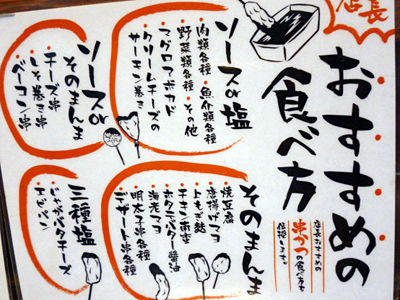 店長
おすすめの
食べ方
店長おすすめの
串かつの食べ方を
伝授します。
ソースor塩
・肉類各種・魚介類各種
・野菜類各種・その他
・マグロアボカド
・クリームチーズの
サーモン巻き
ソースor
そのまんま
・チーズ串
・しそ巻き串
・ベーコン串
そのまんま
・焼豆腐
・唐揚げマヨ
・よもぎ麩
・チキン南蛮
・ホタテバター醤油
・海老マヨ
・明太マヨ串各種
・デザート串各種
三種塩
・じゃがバタチーズ
・エビパン